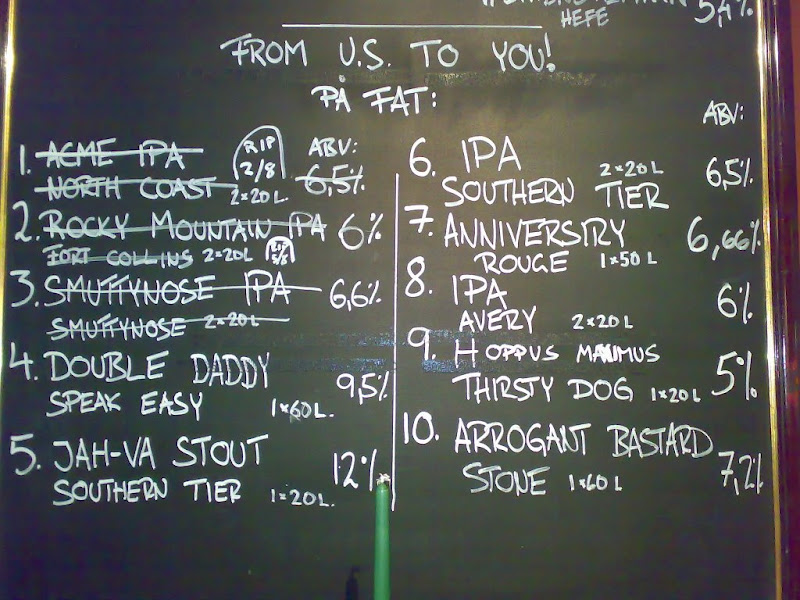 HEFE 5,4%
FROM U.S. TO YOU!
PÅ FAT:
1. ACME IPA RIP 2/8 ABV:
NORTH COAST 2×20 L. 6,5%
2. ROCKY MOUNTAIN IPA 6%
FORT COLLINS 2×20L RIP 5/8
3. SMUTTYNOSE IPA 6,6%
SMUTTYNOSE 2×20L
4. DOUBLE DADDY 9,5%
SPEAK EASY 1×60L.
5. JAH-VA STOUT 12%
SOUTHERN TIER 1×20L.
ABV:
6. IPA 2×20 L 6,5%
SOUTHERN TIER
7. ANNIVERSTRY 6,66%
ROUGE 1×50 L
8. IPA 6%
AVERY 2×20 L
9. HOPPUS MAXIMUS 5%
THIRSTY DOG 1×20 L
10. ARROGANT BASTARD 7,2%
STONE 1×60 L